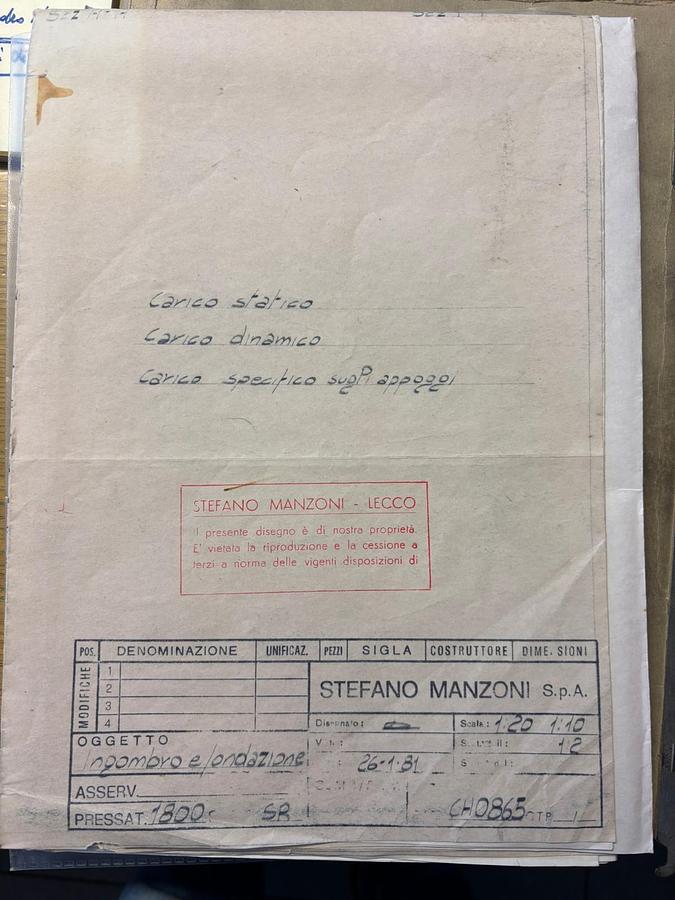 Carico statico
Carico dinamico
Carico specifico sugli appoggi
STEFANO MANZONI - LECCO
Il presente disegno è di nostra proprietà.
E' vietata la riproduzione e la cessione a
terzi a norma delle vigenti disposizioni di
POS. DENOMINAZIONE UNIFICAZ. PEZZI SIGLA COSTRUTTORE DIME. SIONI
MODIFICHE
1
2
3
4
STEFANO MANZONI S.p.A.
Disegnato: Scala: 1:20 1:10
12
OGGETTO
Ingombro e fondazione
26-1-81
ASSERV.
PRESSAT. 1800 SR CH0865